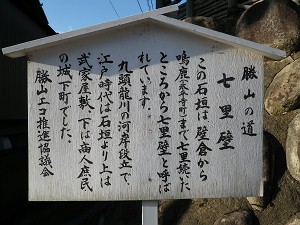 勝山の道
七里壁
この石垣は壁倉から
鳴鹿（永平寺町）まで七里続いた
ところから七里壁と呼ば
れています。
九頭龍川の河岸段立で、
江戸時代は石垣より上は
武家屋敷、下は商人庶民
の城下町でした。
勝山工ﾉ推進協議会